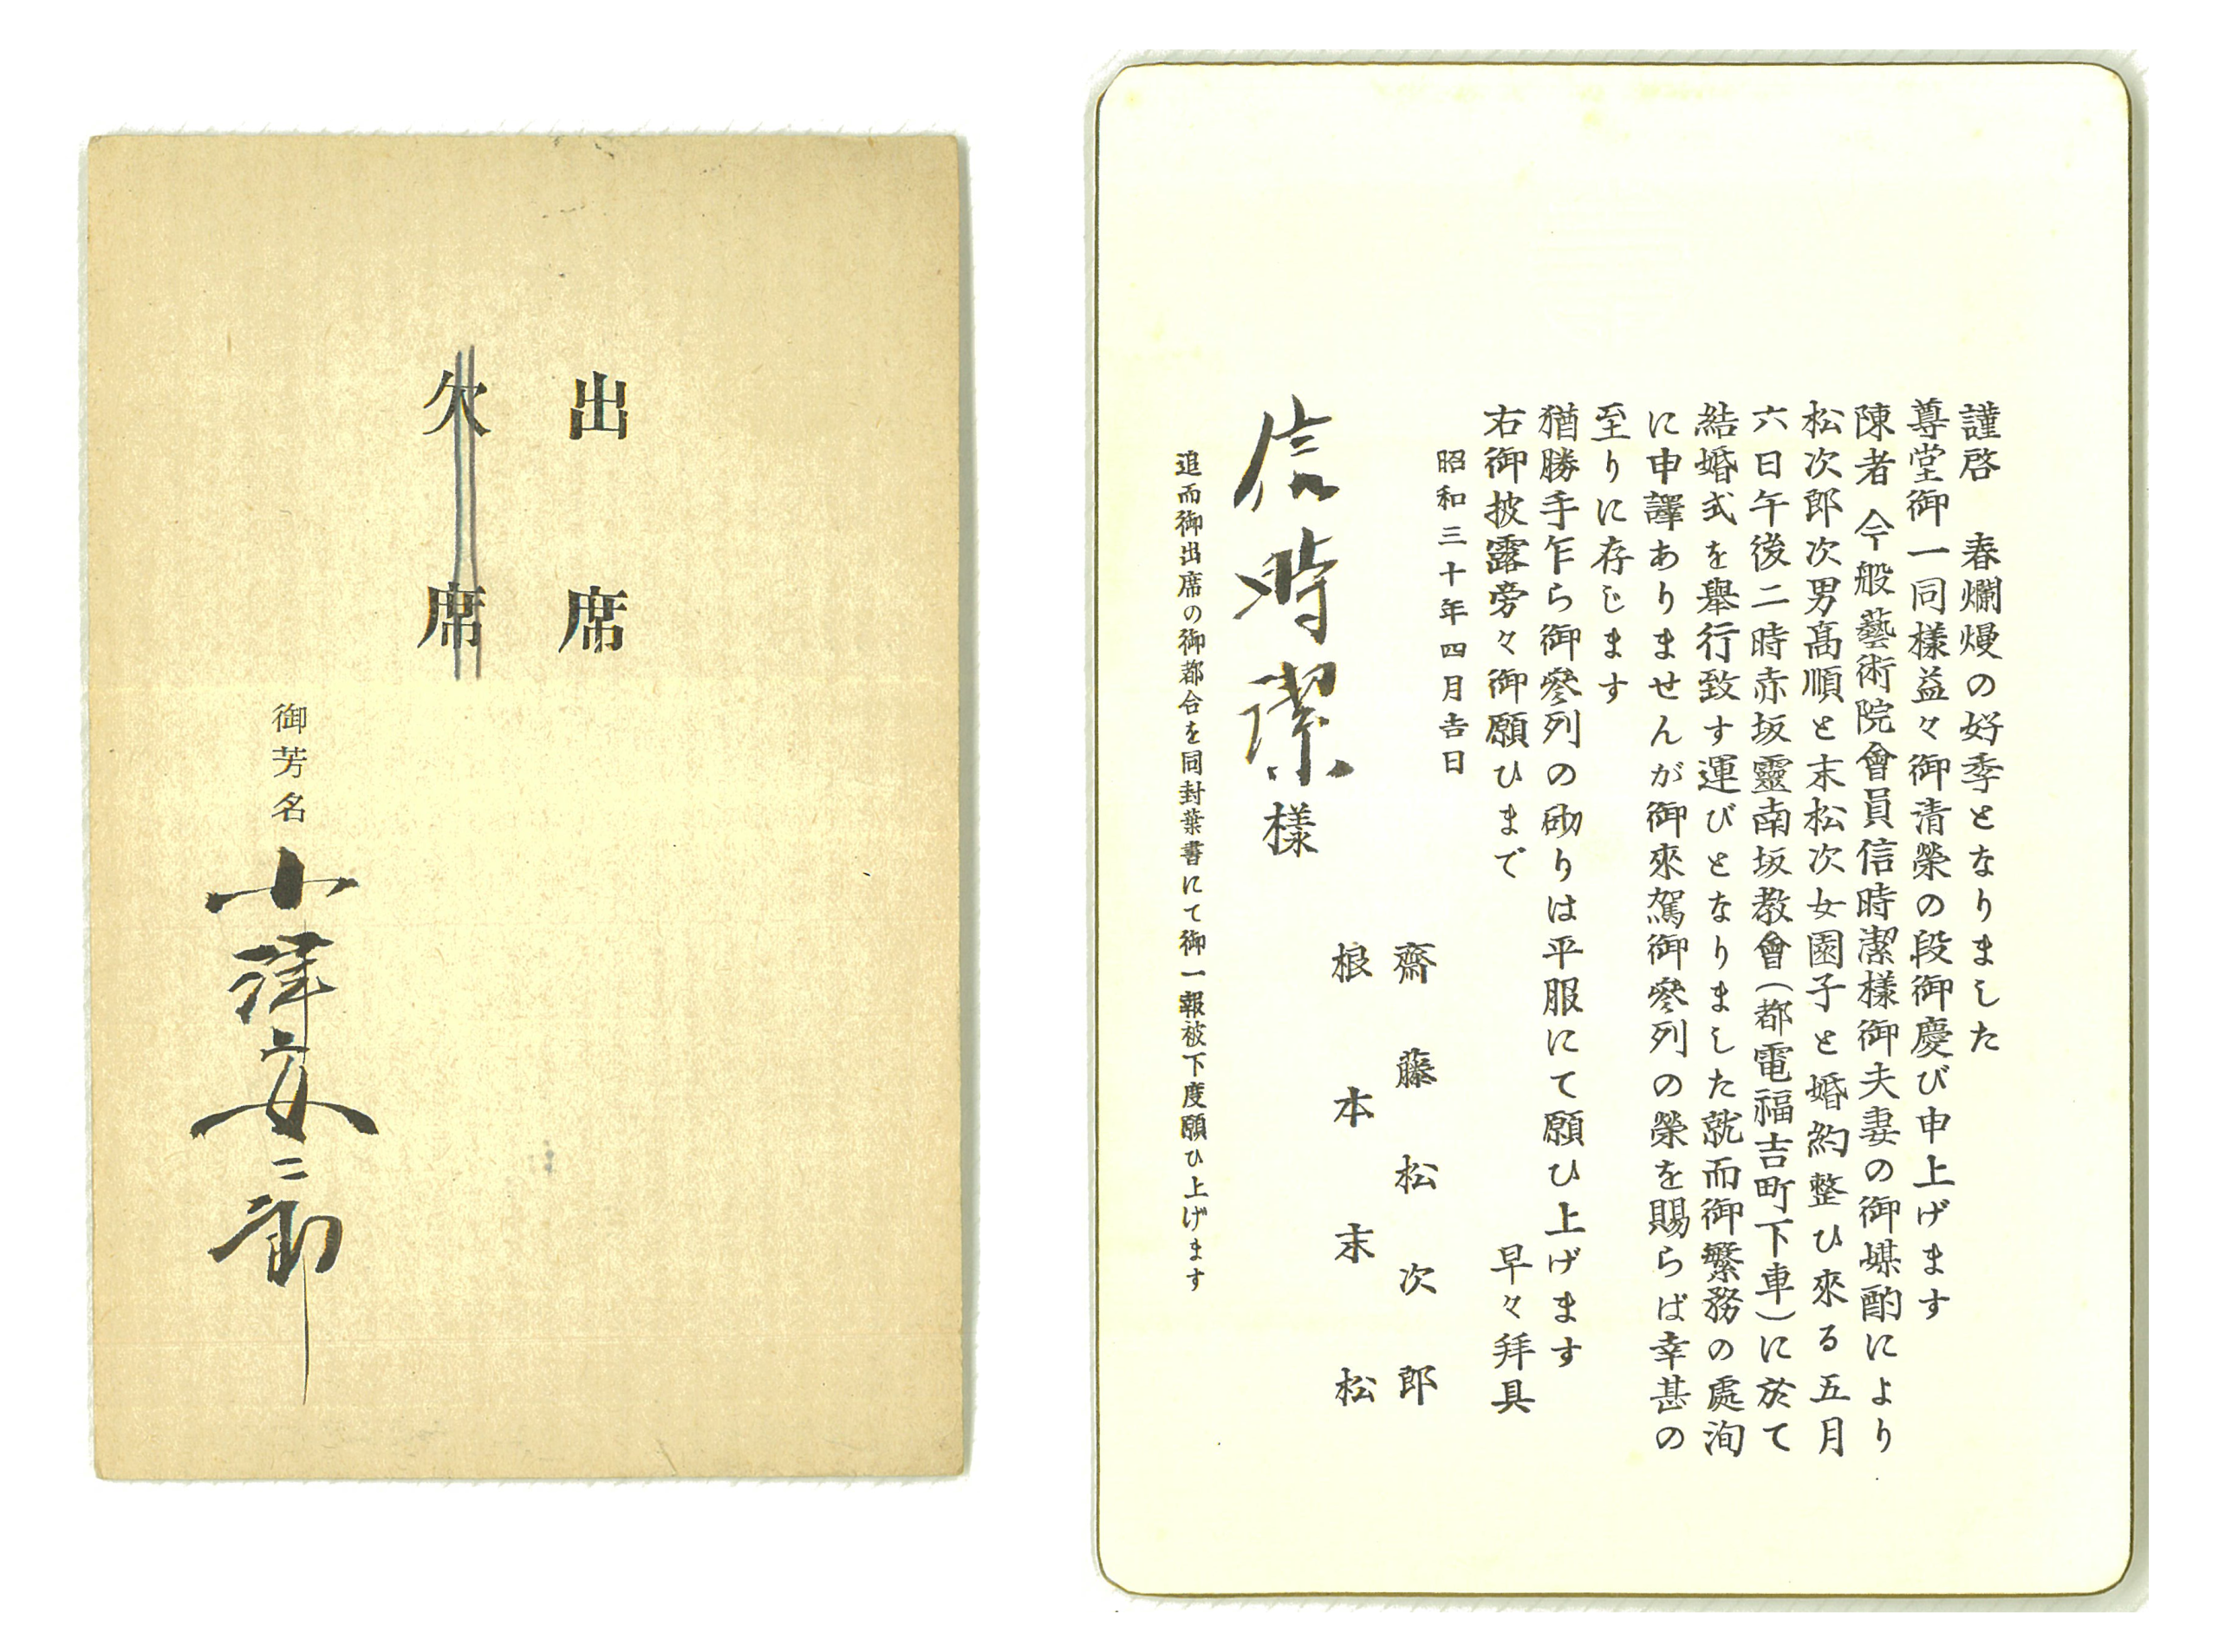 謹啓　春爛熳の好季となりました
尊堂御一同樣益々御清榮の段御慶び申上げます
陳者 今般藝術院會員信時潔樣御夫妻の御媒酌により
松次郎次男髙順と末松次女園子と婚約整ひ來る五月
六日午後二時赤坂靈南坂教會（都電福吉町下車）に於て
結婚式を舉行致す運びとなりました就而御繁務の處洵
に申譯ありませんが御來駕御參列の榮を賜らば幸甚の
至りに存じます
猶勝手乍ら御參列の砌りは平服にて願ひ上げます
右御披露旁々御願ひまで　早々拜具
昭和三十年四月吉日
齋藤松次郎
根本末松
信時潔樣
追而御出席の御都合を同封葉書にて御一報被下度願ひ上げます
出席
欠席
御芳名 小津安二郎